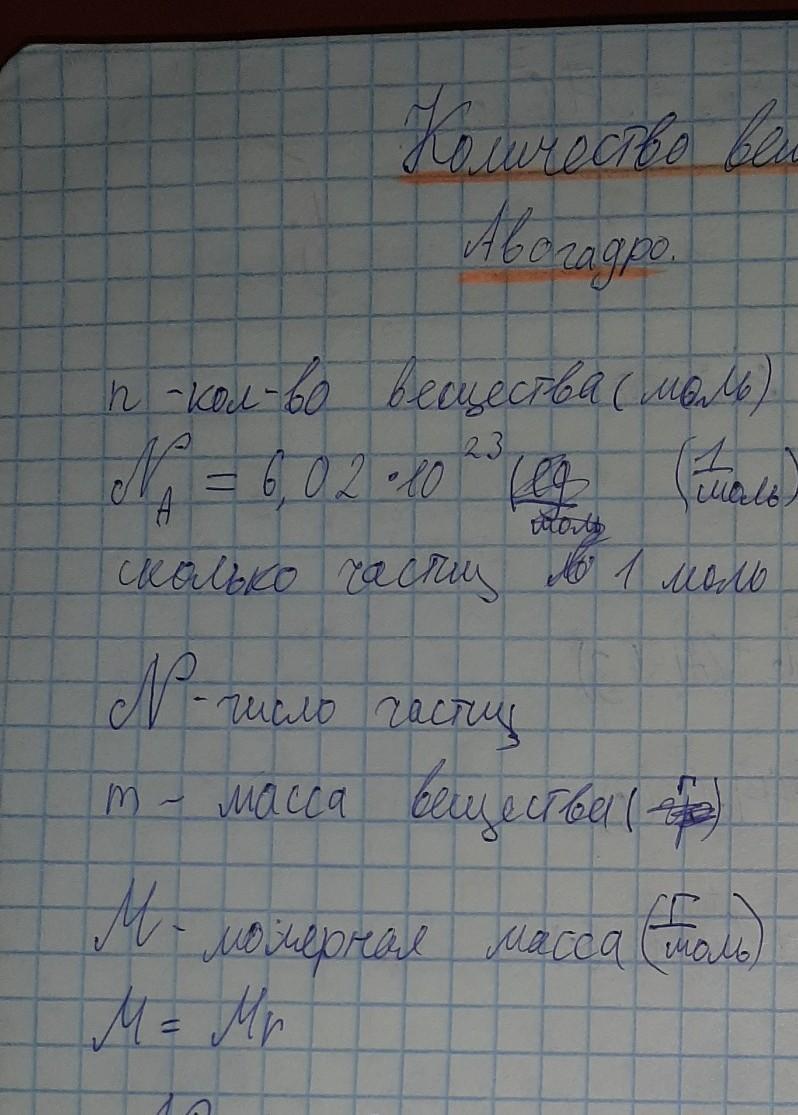 Количество вещ
Авогадро.
n - кол-во вещества (моль)
N_A = 6,02 • 10²³ (1/моль)
сколько частиц в 1 моль
N - число частиц
m - масса вещества (г)
M - молярная масса (г/моль)
M = Mr